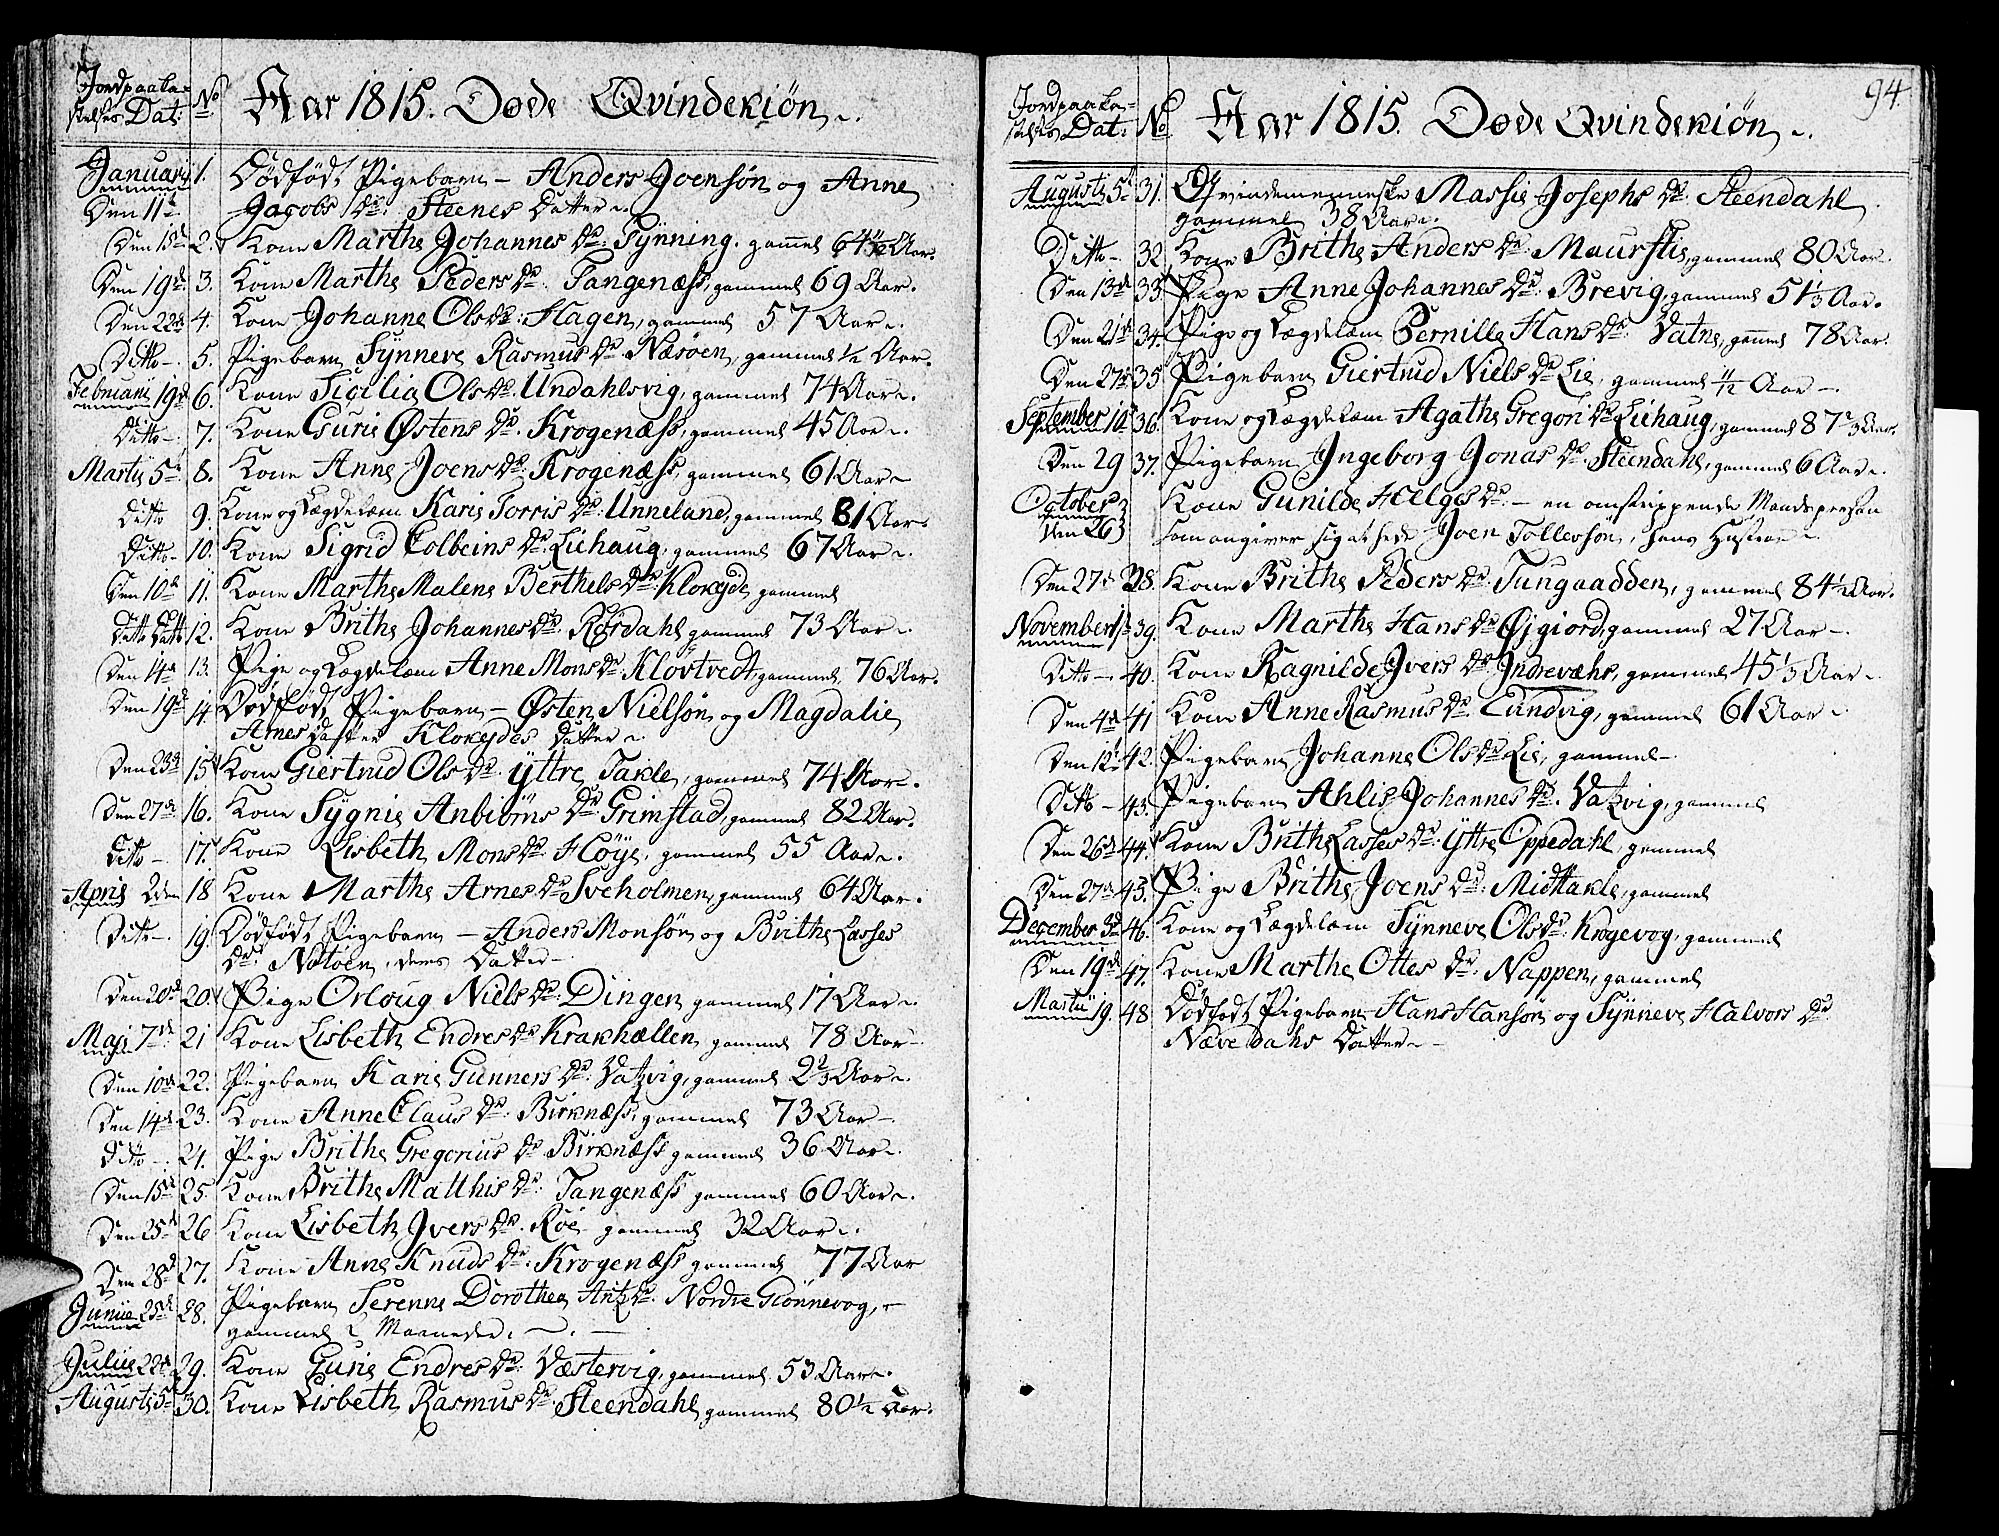 Jordpaaka-
stelses Dat: No Aar 1815. Døde Qvindekiøn
Januarii 1. Dødfødt Pigebarn - Anders Joensøn og Anne
Den 11te Jacobs Dr: Steenes Datter
Den 15de 2. Kone Marthe Johannes Dr: Tynning. gammel 64 1/2 Aar.
Den 19de 3. Kone Marthe Peders Dr: Tangenæss, gammel 69 Aar.
Den 22de 4. Kone Johanne Ols Dr: Hagen, gammel 57 Aar.
Ditto - 5. Pigebarn Synneve Rasmus Dr: Næsøen, gammel 1/2 Aar.
Februarii 19de 6. Kone Sicilia Ols Dr: Undahlsvig, gammel 74 Aar.
Ditto - 7. Kone Guri Østens Dr: Krogenæss, gammel 45 Aar.
Martii 5te 8. Kone Anne Joens Dr: Krogenæss, gammel 61 Aar
Ditto 9. Kone og Lægdelem Kari Torris Dr: Unneland, gammel 81 Aar
Ditto - 10. Kone Sigrid Colbeins Dr: Liehaug, gammel 67 Aar.
Den 10de 11. Kone Marthe Malene Berthels Dr: Klokeyde gammel
Ditto Ditto 12. Kone Brithe Johannes Dr: Rørdahl gammel 73 Aar.
Den 14de 13. Pige og Lægdelem Anne Mons Dr: Kløvtvedt, gammel 76 Aar.
Den 19de 14. Dødfødt Pigebarn - Østen Nielsøn og Magdalie
Arnes Datter Klokeydes Datter
Den 23de 15. Kone Giertrud Ols Dr: Yttre Takle, gammel 74 Aar.
Den 27de 16. Kone Sygni Anbiørns Dr: Grimstad, gammel 82 Aar.
Ditto - 17. Kone Lisbeth Mons Dr: Høye, gammel 55 Aar.
Aprili 2den 18 Kone Marthe Arnes Dr: Sveholmen, gammel 64 Aar.
Ditto - 19. Dødfødt Pigebarn - Anders Monsøn og Brithe Lasses
Dr: Notøen, deres Datter -
Den 20de 20. Pige Orloug Niels Dr: Dingen gammel 17 Aar.
Maji 7de 21 Kone Lisbeth Endres Dr: Krakhællen gammel 78 Aar -
Den 10de 22. Pigebarn Kari Gunners Dr: Vatzvig, gammel 2 2/3 Aar.
Den 14de 23. Kone Anne Claus Dr: Birknæss, gammel 73 Aar -
Ditto - 24. Pige Brithe Gregorius Dr Birknæss gammel 36 Aar.
Den 15de 25. Kone Brithe Matthis Dr: Tangenæss gammel 60 Aar.
Den 25de 26 Kone Lisbeth Ivers Dr: Røe - gammel 32 Aar.
Den 28de 27. Kone Anne Knuds Dr: Krogenæss gammel 77 Aar
Junii 25de 28. Pigebarn Serenne Dorothea Dr: Nordre Giønnevog, -
gammel 2 Maaneder.
Julii 22de 29. Kone Guri Endres Dr: Væstervig, gammel 53 Aar.
Augusti 5te 30. Kone Lisbeth Rasmus Dr: Steendahl gammel 80 1/2 Aar.
94.
Jordpaaka-
stelses Dat: No Aar 1815. Døde Qvindekiøn
Augusti 5te 31. Qvindemenneske Massie Josephs Dr: Steendahl
gammel 38 Aar.
Ditto - 32 Kone Brithe Anders Dr: Maurstig, gammel 80 Aar.
Den 13de 33. Pige Anne Johannes Dr: Brevig, gammel 51 1/3 Aar.
Den 21de 34. Pige og Lægdelem Pernille Hans Dr: Vatne, gammel 78 Aar.
Den 27de 35 Pigebarn Giertrud Niels Dr Lie, gammel Aar -
September 10de 36. Kone og Lægdelem Agathe Gregori Dr Liehaug, gammel 87 2/3 Aar.
Den 29 37. Pigebarn Ingeborg Jonas Dr: Steendahl, gammel 6 Aar.
October Kone Gunilde Helges Dr: - en omstrippende Mandsperson
Den 26 som angiver sig at hede Joen Tollevsøn, hans Hustroe
Den 27de 38. Kone Brithe Peders Dr: Tungaadden, gammel 84 1/2 Aar.
November 1ste 39. Kone Marthe Hans Dr Øigiord, gammel 27 Aar -
Ditto - 40. Kone Ragnilde Ivers Dr Indrevæhr, gammel 45 1/3 Aar -
Den 4de 41 Kone Anne Rasmus Dr: Lundvig, gammel 61 Aar
Den 12te 42. Pigebarn Johanne Ols Dr Lie, gammel -
Ditto - 43. Pigebarn Ahlis Johannes Dr: Vatzvig, gammel
Den 26de 44. Kone Brithe Lasses Dr: Yttre Oppedahl, gammel
Den 27de 45. Pige Brithe Joens Dr: Midttakle, gammel
December 3de 46. Kone og Lægdelem Synneve Ols Dr: Krogevog, gammel
Den 19de 47. Kone Marthe Ottes Dr: Nappen, gammel
Martii 19. 48 Dødfødt Pigebarn Hans Hansøn og Synneve Halvors Dr:
Nævedahs Datter -